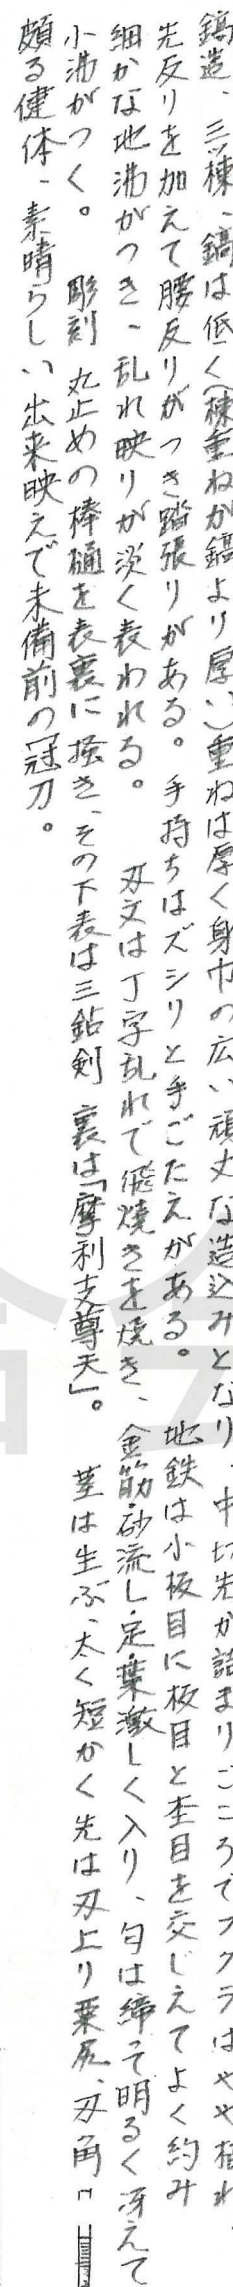 鎬造、三ッ棟、鎬は低く（棟重ねが鎬より厚い）重ねは厚く身巾の広い頑丈な造込みとなり、中切先が詰まりごころでフクラはやや枯れ、
先反りを加えて腰反りがつき踏張りがある。手持ちはズシリと手ごたえがある。　地鉄は小板目に板目と杢目を交じえてよく約み
細かな地沸がつき、乱れ映りが淡く表われる。　刃文は丁字乱れで飛焼きを焼き、金筋・砂流し・足・葉激しく入り、匂は締って明るく冴えて
小沸がつく。　彫刻　丸止めの棒樋を表裏に掻き、その下表は三鈷剣　裏は「摩利支尊天」。　茎は生ぶ、太く短かく先は刃上り栗尻、刃角
頗る健体、素晴らしい出来映えで末備前の冠刀。